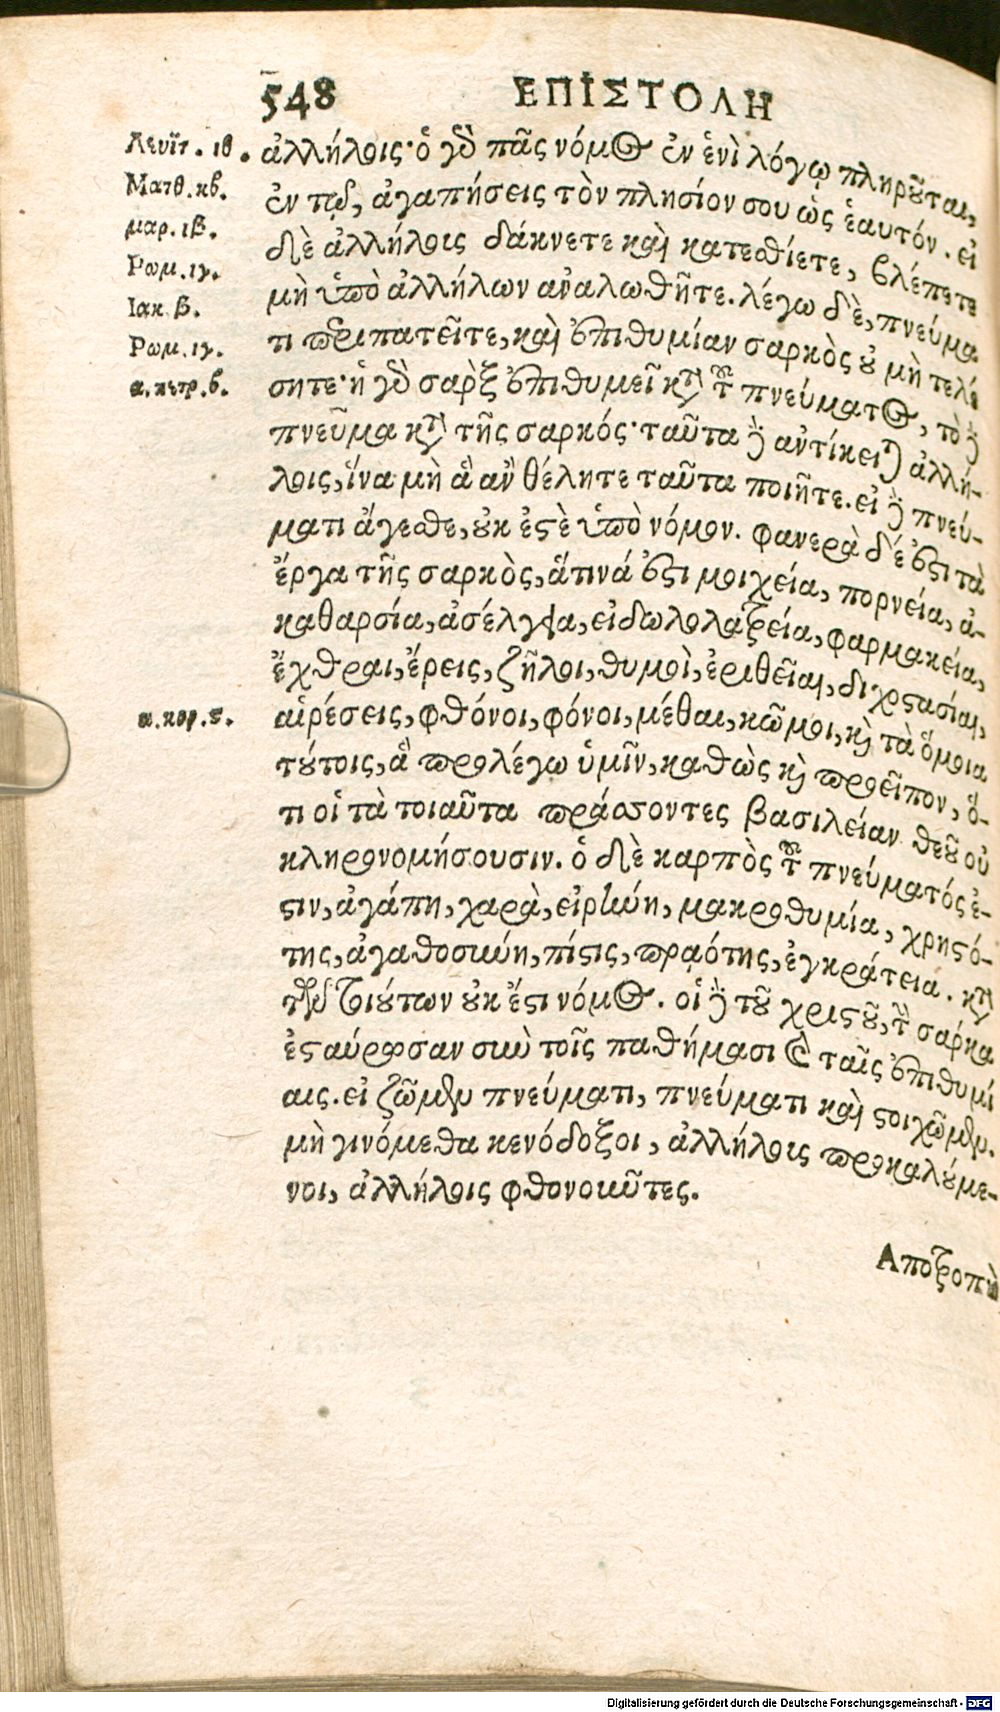 548 ΕΠΙΣΤΟΛΗ
Λευϊτ. ιθ.
Ματθ. κβ.
μαρ. ιβ.
Ρωμ. ιγ.
Ιακ. β.
Ρωμ. ιγ.
α. πετρ. β.
ἀλλήλοις· ὁ γὸ πᾶς νόμος ἐν ἑνὶ λόγῳ πληροῦται,
ἐν τῳ, ἀγαπήσεις τὸν πλησίον σου ὡς ἑαυτόν. εἰ
δὲ ἀλλήλοις δάκνετε καὶ κατεσθίετε, βλέπετε
μὴ ὑπὸ ἀλλήλων ἀναλωθῆτε. λέγω δὲ, πνεύμα
τι περιπατεῖτε, καὶ ἐπιθυμίαν σαρκὸς οὐ μὴ τελέ
σητε· ἡ γὸ σαρξ ἐπιθυμεῖ κτ τοῦ πνεύματος, τὸ δὲ
πνεῦμα κτ τῆς σαρκός· ταῦτα δὲ ἀντίκειτ ἀλλή-
λοις, ἵνα μὴ ἃ ἂν θέλητε ταῦτα ποιῆτε. εἰ δὲ πνεύ-
ματι ἄγεσθε, οὐκ ἐστὲ ὑπὸ νόμον. φανερὰ δέ ἐστι τὰ
ἔργα τῆς σαρκὸς, ἅτινά ἐστι μοιχεία, πορνεία, ἀ-
καθαρσία, ἀσέλγεια, εἰδωλολατρεία, φαρμακεία,
ἔχθραι, ἔρεις, ζῆλοι, θυμοὶ, ἐριθεῖαι, διχοστασίαι,
α. κορ. ϛ.
αἱρέσεις, φθόνοι, φόνοι, μέθαι, κῶμοι, κὶ τὰ ὅμοια
τούτοις, ἃ προλέγω ὑμῖν, καθὼς κὶ προεῖπον, ὅ-
τι οἱ τὰ τοιαῦτα πράσσοντες βασιλείαν θεοῦ οὐ
κληρονομήσουσιν. ὁ δὲ καρπὸς τοῦ πνεύματός ἐ-
στιν, ἀγάπη, χαρὰ, εἰρήνη, μακροθυμία, χρηστό-
της, ἀγαθοσύνη, πίστις, πραότης, ἐγκράτεια. κτ
τῶν τοιούτων οὐκ ἔστι νόμος. οἱ δὲ τοῦ χριστοῦ, τὴν σάρκα
ἐσταύρωσαν σὺν τοῖς παθήμασι καὶ ταῖς ἐπιθυμί
αις. εἰ ζῶμεν πνεύματι, πνεύματι καὶ στοιχῶμεν.
μὴ γινόμεθα κενόδοξοι, ἀλλήλοις προκαλούμε-
νοι, ἀλλήλοις φθονοιῦτες.
Αποτροπὴ
Digitalisierung gefördert durch die Deutsche Forschungsgemeinschaft - DFG